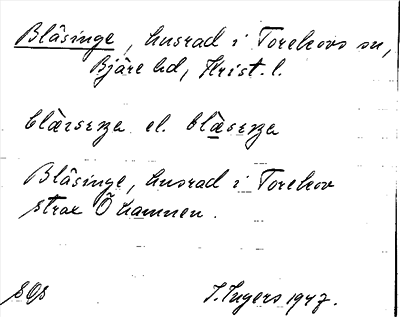 Blåsinge, husrad i Torekovs sn,
Bjäre hd, Krist. l.
el.
Blåsinge, husrad i Torekov
strax Ö hamnen.
sOs I. Ingers 1947.